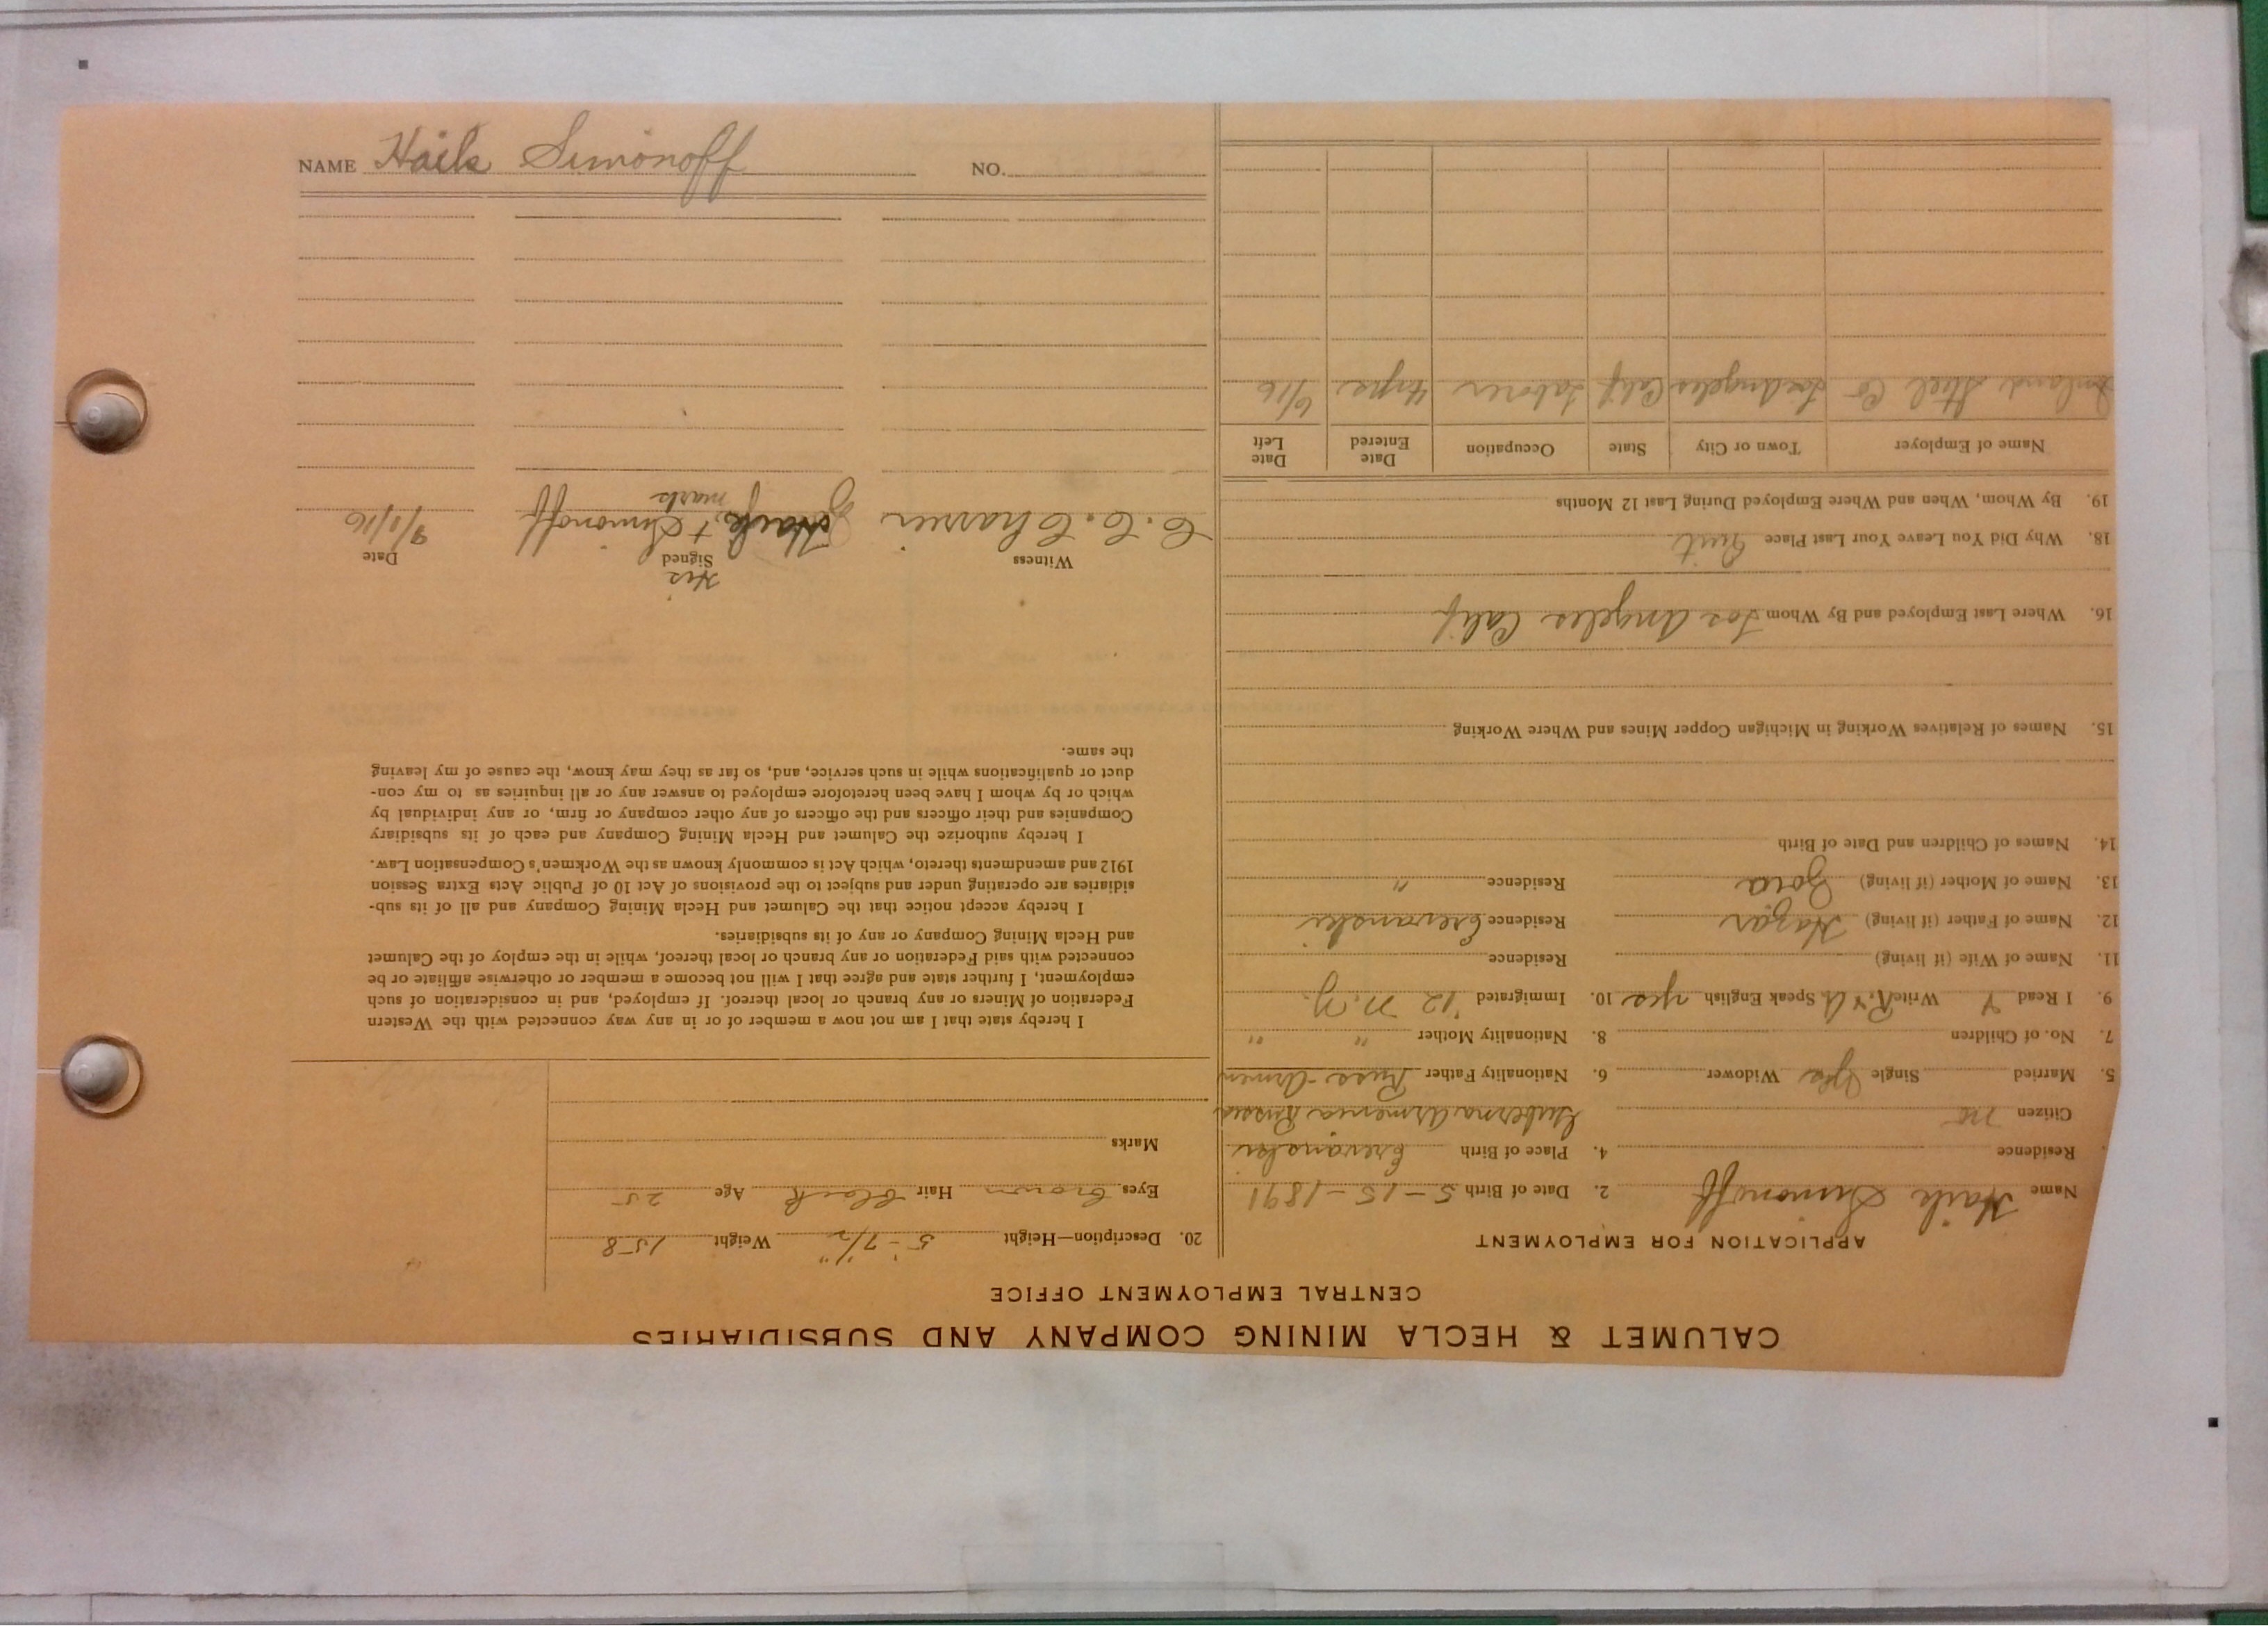 NAME Haik Simonoff NO.
CALUMET & HECLA MINING COMPANY AND SUBSIDIARIES
CENTRAL EMPLOYMENT OFFICE
APPLICATION FOR EMPLOYMENT
Name Haik Simonoff 2. Date of Birth 5-15-1891
Residence 4. Place of Birth Erevanski
Citizen no Guberna Armenia Russia
5. Married Single Yes Widower 6. Nationality Father Russ-Armen
7. No. of Children 8. Nationality Mother " "
9. I Read Write R.&A. Speak English yes 10. Immigrated '12 N.Y.
11. Name of Wife (if living) Residence
12. Name of Father (if living) Nazar Residence Erevanski
13. Name of Mother (if living) Zora Residence "
14. Names of Children and Date of Birth
15. Names of Relatives Working in Michigan Copper Mines and Where Working
16. Where Last Employed and By Whom Los Angeles Calif
18. Why Did You Leave Your Last Place Quit
19. By Whom, When and Where Employed During Last 12 Months
Name of Employer Town or City State Occupation Date Entered Date Left
Inland Steel Co Los Angeles Calif Laborer 4 yrs 6/16
20. Description—Height 5'-7½" Weight 158
Eyes brown Hair black Age 25
Marks
I hereby state that I am not now a member of or in any way connected with the Western
Federation of Miners or any branch or local thereof. If employed, and in consideration of such
employment, I further state and agree that I will not become a member or otherwise affiliate or be
connected with said Federation or any branch or local thereof, while in the employ of the Calumet
and Hecla Mining Company or any of its subsidiaries.
I hereby accept notice that the Calumet and Hecla Mining Company and all of its sub-
sidiaries are operating under and subject to the provisions of Act 10 of Public Acts Extra Session
1912 and amendments thereto, which Act is commonly known as the Workmen's Compensation Law.
I hereby authorize the Calumet and Hecla Mining Company and each of its subsidiary
Companies and their officers and the officers of any other company or firm, or any individual by
which or by whom I have been heretofore employed to answer any or all inquiries as to my con-
duct or qualifications while in such service, and, so far as they may know, the cause of my leaving
the same.
His
Witness Signed Date
Haik + Simonoff 9/1/16
mark